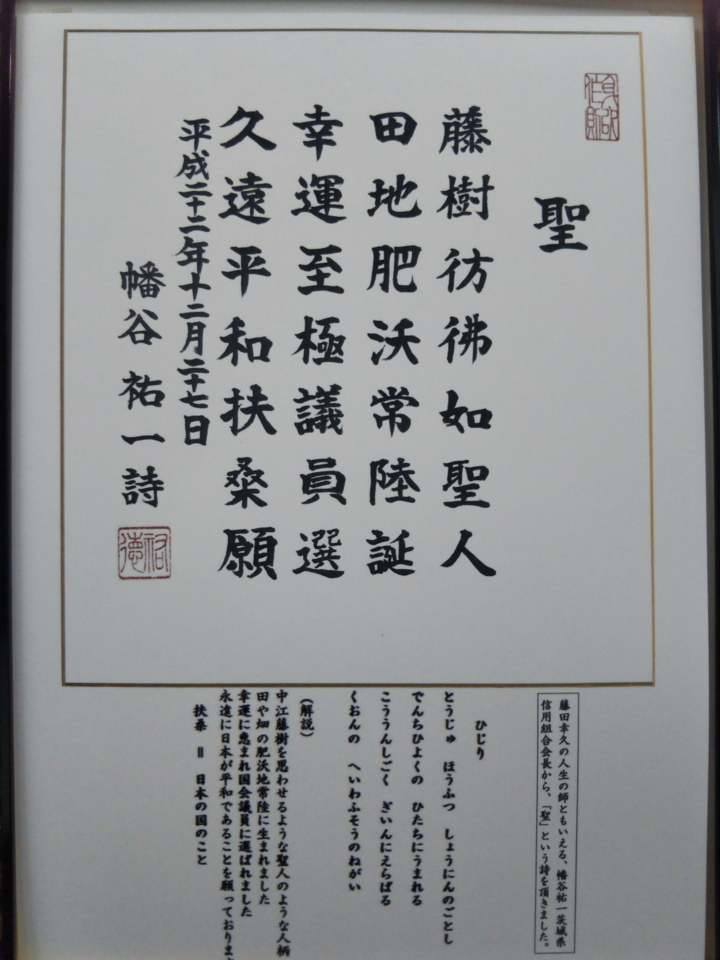 聖
藤樹彷彿如聖人
田地肥沃常陸誕
幸運至極議員選
久遠平和扶桑願
平成二十二年十二月二十七日
幡谷祐一詩
祐徳
藤田幸久の人生の師ともいえる、幡谷祐一茨城県
信用組合会長から、「聖」という詩を頂きました。
ひじり
とうじゅ ほうふつ しょうにんのごとし
でんちひよくの ひたちにうまれる
こううんしごく ぎいんにえらばる
くおんの へいわふそうのねがい
(解説)
中江藤樹を思わせるような聖人のような人柄
田や畑の肥沃地常陸に生まれました
幸運に恵まれ国会議員に選ばれました
永遠に日本が平和であることを願っております
扶桑 = 日本の国のこと